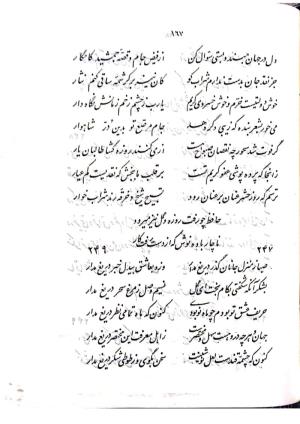 ۱۶۷
دل در جهان مبند و بمستی سؤال کن
از فیض جام و قصّهٔ جمشید کامگار
جز نقد جان بدست ندارم شراب کو
کان نیز بر کرشمهٔ ساقی کنم نثار
خوش دولتیست خرّم و خوش خسروی کریم
یارب ز چشم زخم زمانش نگاه دار
می خور بشعر بنده که زیبی دگر دهد
جام مرصّع تو بدین درّ شاهوار
گر فوت شد سحور چه نقصان صبوح هست
از می کنند روزه گشا طالبان یار
زانجا که پرده پوشی عفو کریم تست
بر قلب ما ببخش که نقدیست کم عیار
ترسم که روز حشر عنان بر عنان رود
تسبیح شیخ و خرقهٔ رند شرابخوار
حافظ چو رفت روزه و گل نیز میرود
ناچار باده نوش که از دست رفت کار
۲۴۷
۲۴۹
صبا ز منزل جانان گذر دریغ مدار
وزو بعاشق بیدل خبر دریغ مدار
بشکر آنکه شکفتی بکام بخت ای گل
نسیم وصل ز مرغ سحر دریغ مدار
حریف عشق تو بودم چو ماه نو بودی
کنون که ماه تمامی نظر دریغ مدار
جهان و هرچه درو هست سهل و مختصرست
ز اهل معرفت این مختصر دریغ مدار
کنون که چشمهٔ قندست لعل نوشینت
سخن بگوی و ز طوطی شکر دریغ مدار